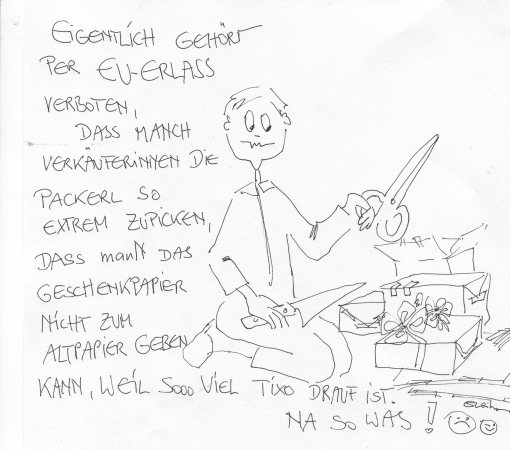 EIGENTLICH GEHÖRT
PER EU-ERLASS
VERBOTEN,
DASS MANCH
VERKÄUFERINNEN DIE
PACKERL SO
EXTREM ZUPICKEN,
DASS maNN DAS
GESCHENKPAPIER
NICHT ZUM
ALTPAPIER GEBEN
KANN, WEIL SOOO VIEL TIXO DRAUF IST.
NA SO WAS!